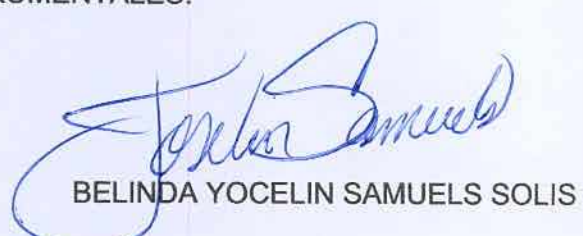 Joselin Samuels
BELINDA YOCELIN SAMUELS SOLIS